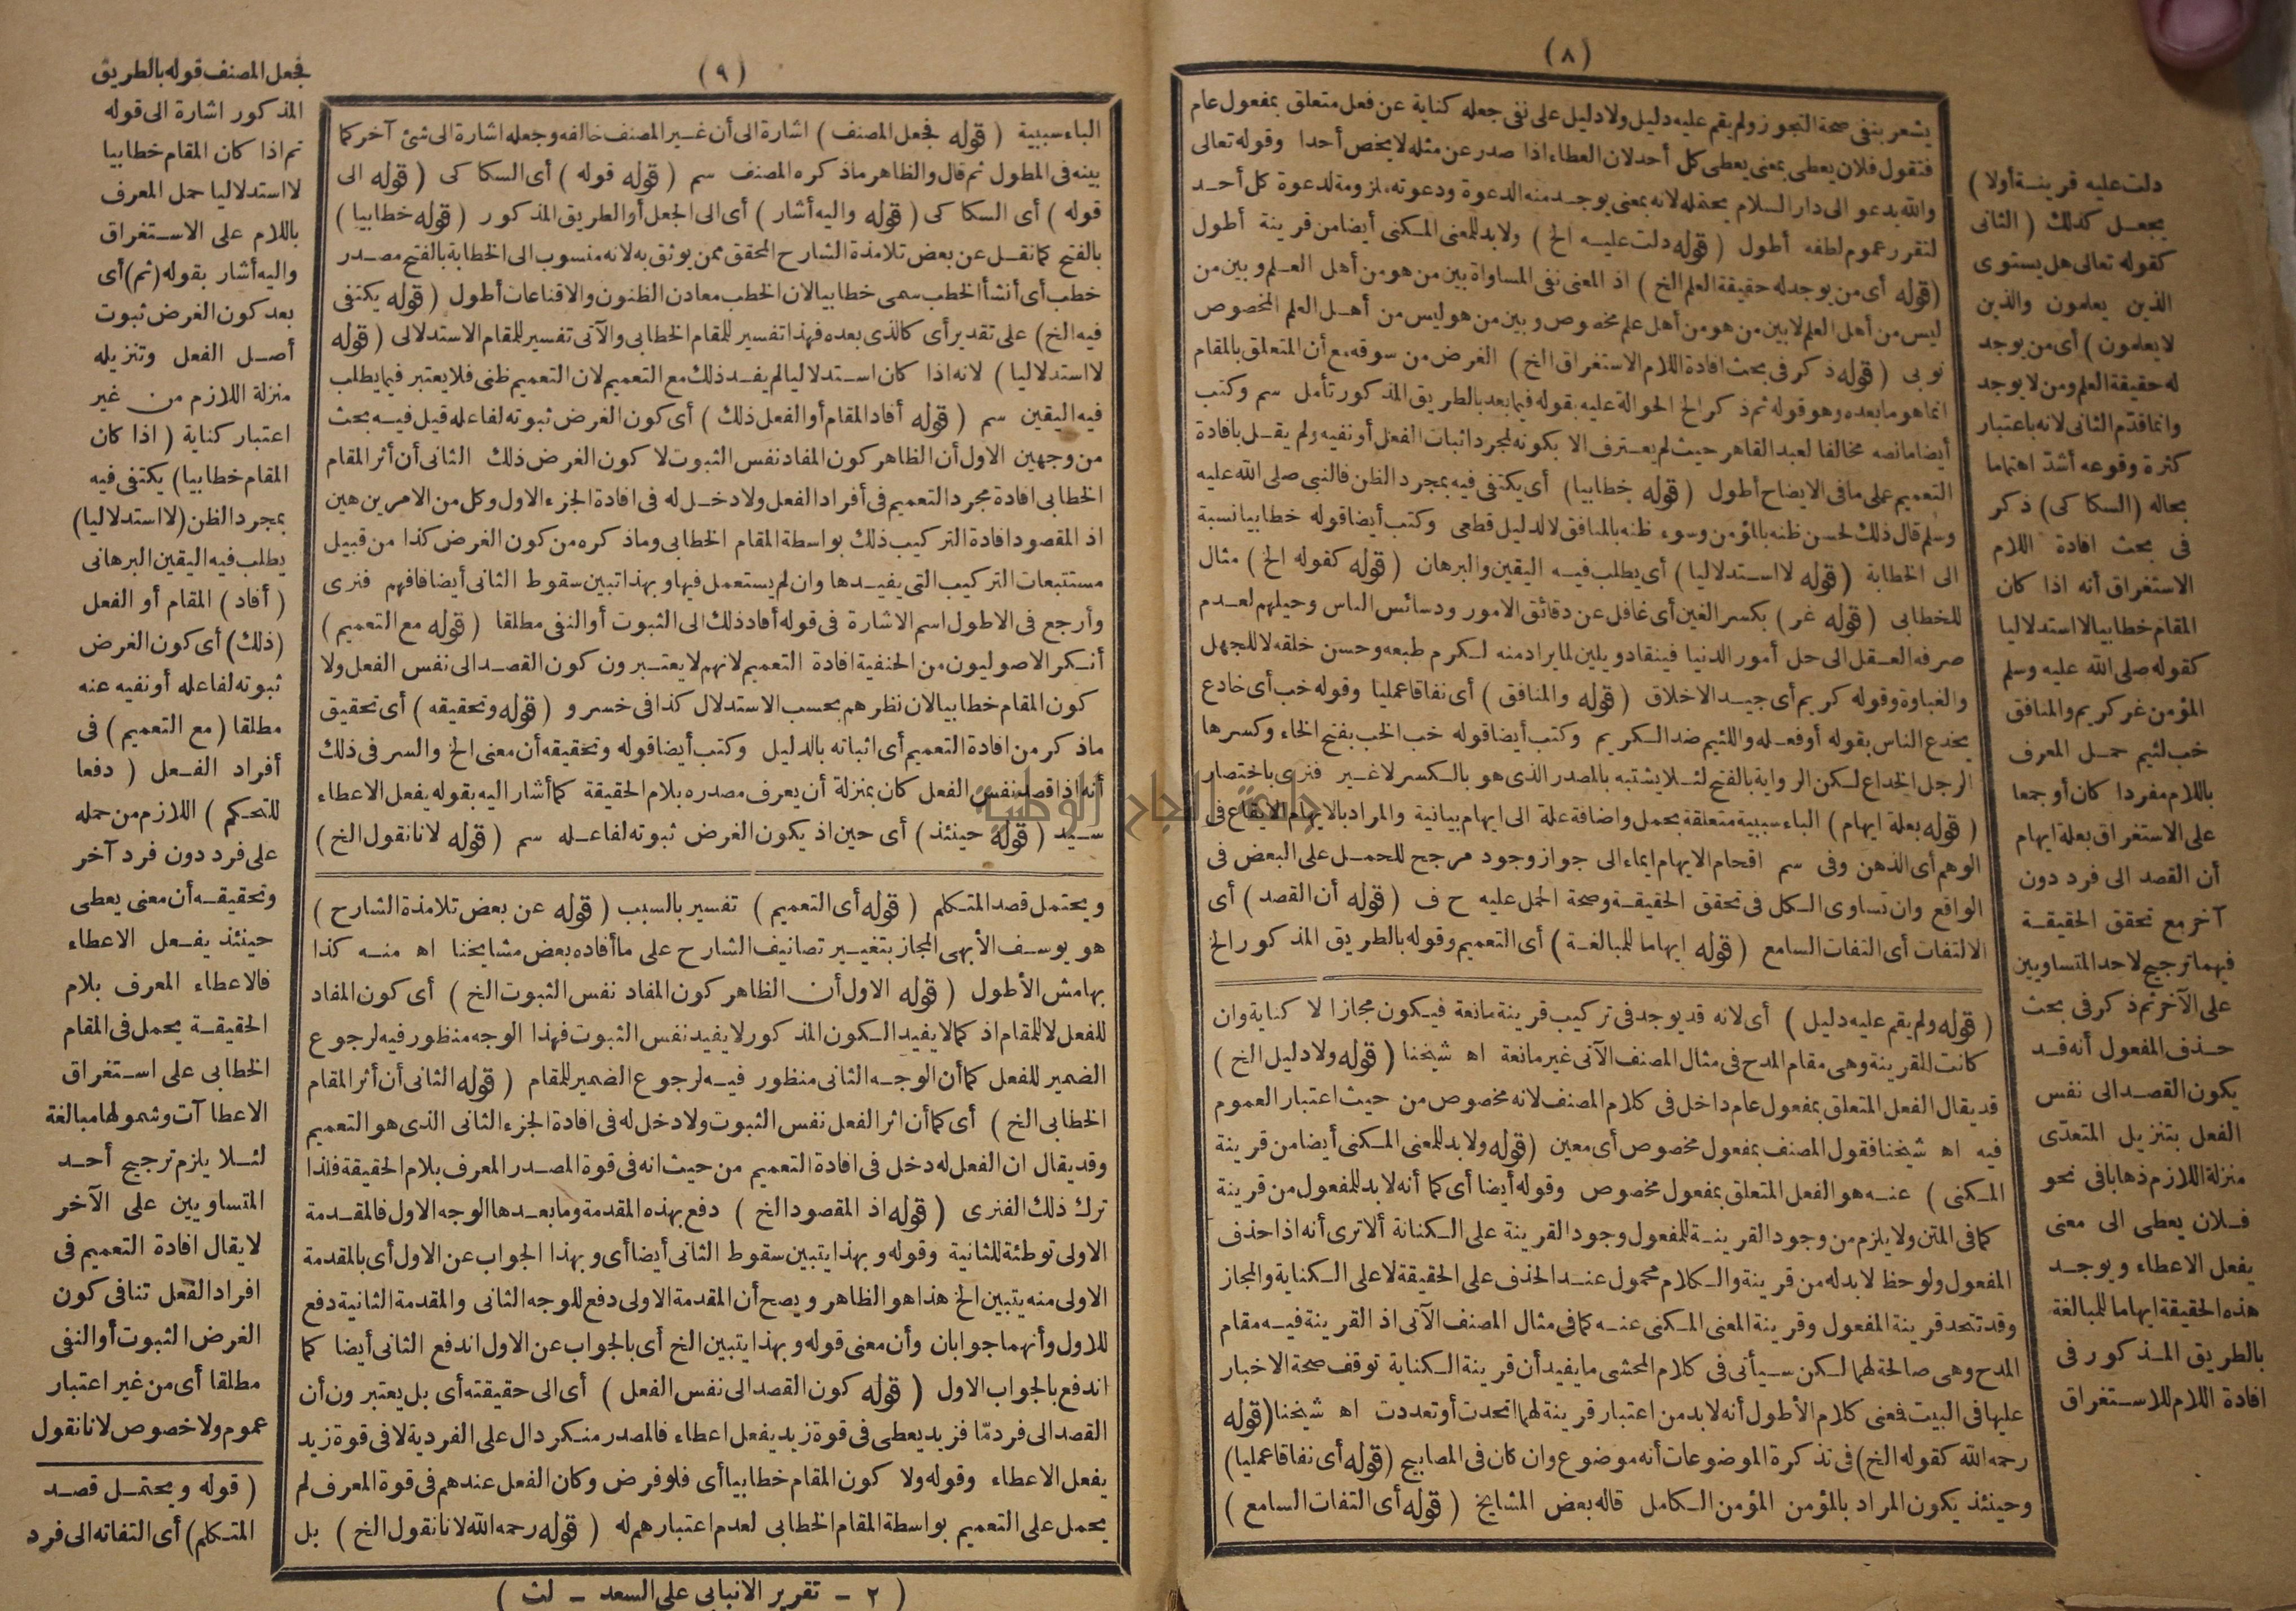 (٨)
يشعر بنفى صحة التجوز ولم يقم عليه دليل ولا دليل على نفى جعله كناية عن فعل متعلق بمفعول عام
فتقول فلان يعطى بمعنى يعطى كل أحد لان العطاء اذا صدر عن مثله لا يخص أحدا وقوله تعالى
والله يدعو الى دار السلام يحتمله لانه بمعنى يوجد منه الدعوة ودعوته ملزومة لدعوة كل أحد
لتقرر عموم لطفه أطول (قوله دلت عليه الخ) ولا بد للمعنى المكنى أيضا من قرينة أطول
(قوله أى من يوجد له حقيقة العلم الخ) اذ المعنى نفى المساواة بين من هو من أهل العلم وبين من
ليس من أهل العلم لا بين من هو من أهل علم مخصوص وبين من هو ليس من أهل العلم المخصوص
نوبى (قوله ذكر فى بحث افادة اللام الاستغراق الخ) الغرض من سوقه مع أن المتعلق بالمقام
انما هو ما بعده وهو قوله ثم ذكر الخ الحوالة عليه بقوله فيما بعد بالطريق المذكور تأمل سم وكتب
أيضا مانصه مخالفا لعبد القاهر حيث لم يعترف الا بكونه لمجرد اثبات الفعل أو نفيه ولم يقل بافادة
التعميم على ما فى الايضاح أطول (قوله خطابيا) أى يكتفى فيه بمجرد الظن فالنبى صلى الله عليه
وسلم قال ذلك لحسن ظنه بالمؤمن وسوء ظنه بالمنافق لا لدليل قطعى وكتب أيضا قوله خطابيا نسبة
الى الخطابة (قوله لا استدلاليا) أى يطلب فيه اليقين والبرهان (قوله كقوله الخ) مثال
للخطابى (قوله غر) بكسر الغين أى غافل عن دقائق الامور ودسائس الناس وحيلهم لعدم
صرفه العقل الى حل أمور الدنيا فينقاد ويلين لما يراد منه لكرم طبعه وحسن خلقه لا للجهل
والغباوة وقوله كريم أى جيد الاخلاق (قوله والمنافق) أى نفاقا عمليا وقوله خب أى خادع
يخدع الناس بقوله أو فعله واللئيم ضد الكريم وكتب أيضا قوله خب الخب بفتح الخاء وكسرها
الرجل الخداع لكن الرواية بالفتح لئلا يشتبه بالمصدر الذى هو بالكسر لا غير فنرى باختصار
(قوله بعلة ايهام) الباء سببية متعلقة بحمل واضافة علة الى ايهام بيانية والمراد بالايهام الايقاع فى
الوهم أى الذهن وفى سم اقحام الايهام ايماء الى جواز وجود مرجح للحمل على البعض فى
الواقع وان تساوى الكل فى تحقق الحقيقة وصحة الحمل عليه ح ف (قوله أن القصد) أى
الالتفات أى التفات السامع (قوله ايهاما للمبالغة) أى التعميم وقوله بالطريق المذكور الخ
(قوله ولم يقم عليه دليل) أى لانه قد يوجد فى تركيب قرينة مانعة فيكون مجازا لا كناية وان
كانت القرينة وهى مقام المدح فى مثال المصنف الآتى غير مانعة اه شيخنا (قوله ولا دليل الخ)
قد يقال الفعل المتعلق بمفعول عام داخل فى كلام المصنف لانه مخصوص من حيث اعتبار العموم
فيه اه شيخنا فقول المصنف بمفعول مخصوص أى معين (قوله ولا بد للمعنى المكنى أيضا من قرينة
المكنى) عنه هو الفعل المتعلق بمفعول مخصوص وقوله أيضا أى كما أنه لا بد للمفعول من قرينة
كما فى المتن ولا يلزم من وجود القرينة للمفعول وجود القرينة على الكناية ألا ترى أنه اذا حذف
المفعول ولوحظ لا بد له من قرينة والكلام محمول عند الحذف على الحقيقة لا على الكناية والمجاز
وقد تتحد قرينة المفعول وقرينة المعنى المكنى عنه كما فى مثال المصنف الآتى اذ القرينة فيه مقام
المدح وهى صالحة لهما لكن سيأتى فى كلام المحشى ما يفيد أن قرينة الكناية توقف صحة الاخبار
عليها فى البيت فعنى كلام الأطول أنه لا بد من اعتبار قرينة لهما اتحدت أو تعددت اه شيخنا (قوله
رحمه الله كقوله الخ) فى تذكرة الموضوعات أنه موضوع وان كان فى المصابيح (قوله أى نفاقا عمليا)
وحينئذ يكون المراد بالمؤمن المؤمن الكامل قاله بعض المشايخ (قوله أى التفات السامع)
دلت عليه قرينة أولا)
يجعل كذلك (الثانى
كقوله تعالى هل يستوى
الذين يعلمون والذين
لا يعلمون) أى من يوجد
له حقيقة العلم ومن لا يوجد
وانما قدم الثانى لانه باعتبار
كثرة وقوعه أشد اهتماما
بحاله (السكاكى) ذكر
فى بحث افادة اللام
الاستغراق أنه اذا كان
المقام خطابيا لا استدلاليا
كقوله صلى الله عليه وسلم
المؤمن غر كريم والمنافق
خب لئيم حمل المعرف
باللام مفردا كان أو جمعا
على الاستغراق بعلة ايهام
أن القصد الى فرد دون
آخر مع تحقق الحقيقة
فيهما ترجيح لاحد المتساويين
على الآخر ثم ذكر فى بحث
حذف المفعول أنه قد
يكون القصد الى نفس
الفعل بتنزيل المتعدّى
منزلة اللازم ذهابا فى نحو
فلان يعطى الى معنى
يفعل الاعطاء ويوجد
هذه الحقيقة ايهاما للمبالغة
بالطريق المذكور فى
افادة اللام للاستغراق
(٩)
الباء سببية (قوله فجعل المصنف) اشارة الى أن غير المصنف خالفه وجعله اشارة الى شئ آخر كما
بينه فى المطول ثم قال والظاهر ما ذكره المصنف سم (قوله قوله) أى السكاكى (قوله الى
قوله) أى السكاكى (قوله واليه أشار) أى الى الجعل أو الطريق المذكور (قوله خطابيا)
بالفتح كما نقل عن بعض تلامذة الشارح المحقق ممن يوثق به لانه منسوب الى الخطابة بالفتح مصدر
خطب أى أنشأ الخطب سمى خطابيا لان الخطب معادن الظنون والاقناعات أطول (قوله يكتفى
فيه الخ) على تقدير أى كالذى بعده فهذا تفسير للمقام الخطابى والآتى تفسير للمقام الاستدلالى (قوله
لا استدلاليا) لانه اذا كان استدلاليا لم يفد ذلك مع التعميم لان التعميم ظنى فلا يعتبر فيما يطلب
فيه اليقين سم (قوله أفاد المقام أو الفعل ذلك) أى كون الغرض ثبوته لفاعله قيل فيه بحث
من وجهين الاول أن الظاهر كون المفاد نفس الثبوت لا كون الغرض ذلك الثانى أن أثر المقام
الخطابى افادة مجرد التعميم فى أفراد الفعل ولا دخل له فى افادة الجزء الاول وكل من الامرين هين
اذ المقصود افادة التركيب ذلك بواسطة المقام الخطابى وما ذكره من كون الغرض كذا من قبيل
مستتبعات التركيب التى يفيدها وان لم يستعمل فيها وبهذا تبين سقوط الثانى أيضا فافهم فنرى
وأرجع فى الاطول اسم الاشارة فى قوله أفاد ذلك الى الثبوت أو النفى مطلقا (قوله مع التعميم)
أنكر الاصوليون من الحنفية افادة التعميم لانهم لا يعتبرون كون القصد الى نفس الفعل ولا
كون المقام خطابيا لان نظرهم بحسب الاستدلال كذا فى خسرو (قوله وتحقيقه) أى تحقيق
ما ذكر من افادة التعميم أى اثباته بالدليل وكتب أيضا قوله وتحقيقه أن معنى الخ والسر فى ذلك
أنه اذا قصد نفس الفعل كان بمنزلة أن يعرف مصدره بلام الحقيقة كما أشار اليه بقوله يفعل الاعطاء
سيد (قوله حينئذ) أى حين اذ يكون الغرض ثبوته لفاعله سم (قوله لانا نقول الخ)
ويحتمل قصد المتكلم (قوله أى التعميم) تفسير بالسبب (قوله عن بعض تلامذة الشارح)
هو يوسف الأبهى المجاز بتغيير تصانيف الشارح على ما أفاده بعض مشايخنا اه منه كذا
بهامش الأطول (قوله الاول أن الظاهر كون المفاد نفس الثبوت الخ) أى كون المفاد
للفعل لا للمقام اذ كما لا يفيد الكون المذكور لا يفيد نفس الثبوت فهذا الوجه منظور فيه لرجوع
الضمير للفعل كما أن الوجه الثانى منظور فيه لرجوع الضمير للمقام (قوله الثانى أن أثر المقام
الخطابى الخ) أى كما أن اثر الفعل نفس الثبوت ولا دخل له فى افادة الجزء الثانى الذى هو التعميم
وقد يقال ان الفعل له دخل فى افادة التعميم من حيث انه فى قوة المصدر المعرف بلام الحقيقة فلذا
ترك ذلك الفنرى (قوله اذ المقصود الخ) دفع بهذه المقدمة وما بعدها الوجه الاول فالمقدمة
الاولى توطئة للثانية وقوله وبهذا يتبين سقوط الثانى أيضا أى وبهذا الجواب عن الاول أى بالمقدمة
الاولى منه يتبين الخ هذا هو الظاهر ويصح أن المقدمة الاولى دفع للوجه الثانى والمقدمة الثانية دفع
للاول وأنهما جوابان وأن معنى قوله وبهذا يتبين الخ أى بالجواب عن الاول اندفع الثانى أيضا كما
اندفع بالجواب الاول (قوله كون القصد الى نفس الفعل) أى الى حقيقته أى بل يعتبرون أن
القصد الى فرد مّا فزيد يعطى فى قوة زيد يفعل اعطاء فالمصدر منكر دال على الفردية لا فى قوة زيد
يفعل الاعطاء وقوله ولا كون المقام خطابيا أى فلو فرض وكان الفعل عندهم فى قوة المعرف لم
يحمل على التعميم بواسطة المقام الخطابى لعدم اعتبارهم له (قوله رحمه الله لانا نقول الخ) بل
فجعل المصنف قوله بالطريق
المذكور اشارة الى قوله
ثم اذا كان المقام خطابيا
لا استدلاليا حمل المعرف
باللام على الاستغراق
واليه أشار بقوله (ثم) أى
بعد كون الغرض ثبوت
أصل الفعل وتنزيله
منزلة اللازم من غير
اعتبار كناية (اذا كان
المقام خطابيا) يكتفى فيه
بمجرد الظن (لا استدلاليا)
يطلب فيه اليقين البرهانى
(أفاد) المقام أو الفعل
(ذلك) أى كون الغرض
ثبوته لفاعله أو نفيه عنه
مطلقا (مع التعميم) فى
أفراد الفعل (دفعا
للتحكم) اللازم من حمله
على فرد دون فرد آخر
وتحقيقه أن معنى يعطى
حينئذ يفعل الاعطاء
فالاعطاء المعرف بلام
الحقيقة يحمل فى المقام
الخطابى على استغراق
الاعطاآت وشمولها مبالغة
لئلا يلزم ترجيح أحد
المتساويين على الآخر
لا يقال افادة التعميم فى
افراد الفعل تنافى كون
الغرض الثبوت أو النفى
مطلقا أى من غير اعتبار
عموم ولا خصوص لانا نقول
(قوله ويحتمل قصد
المتكلم) أى التفاته الى فرد
(٢ - تقرير الانبابى على السعد - لث)
جامعة النجاح الوطنية